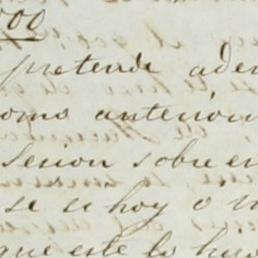 000
pretende ade
omo anterior
sesion sobre
se si hoy o
que este lo